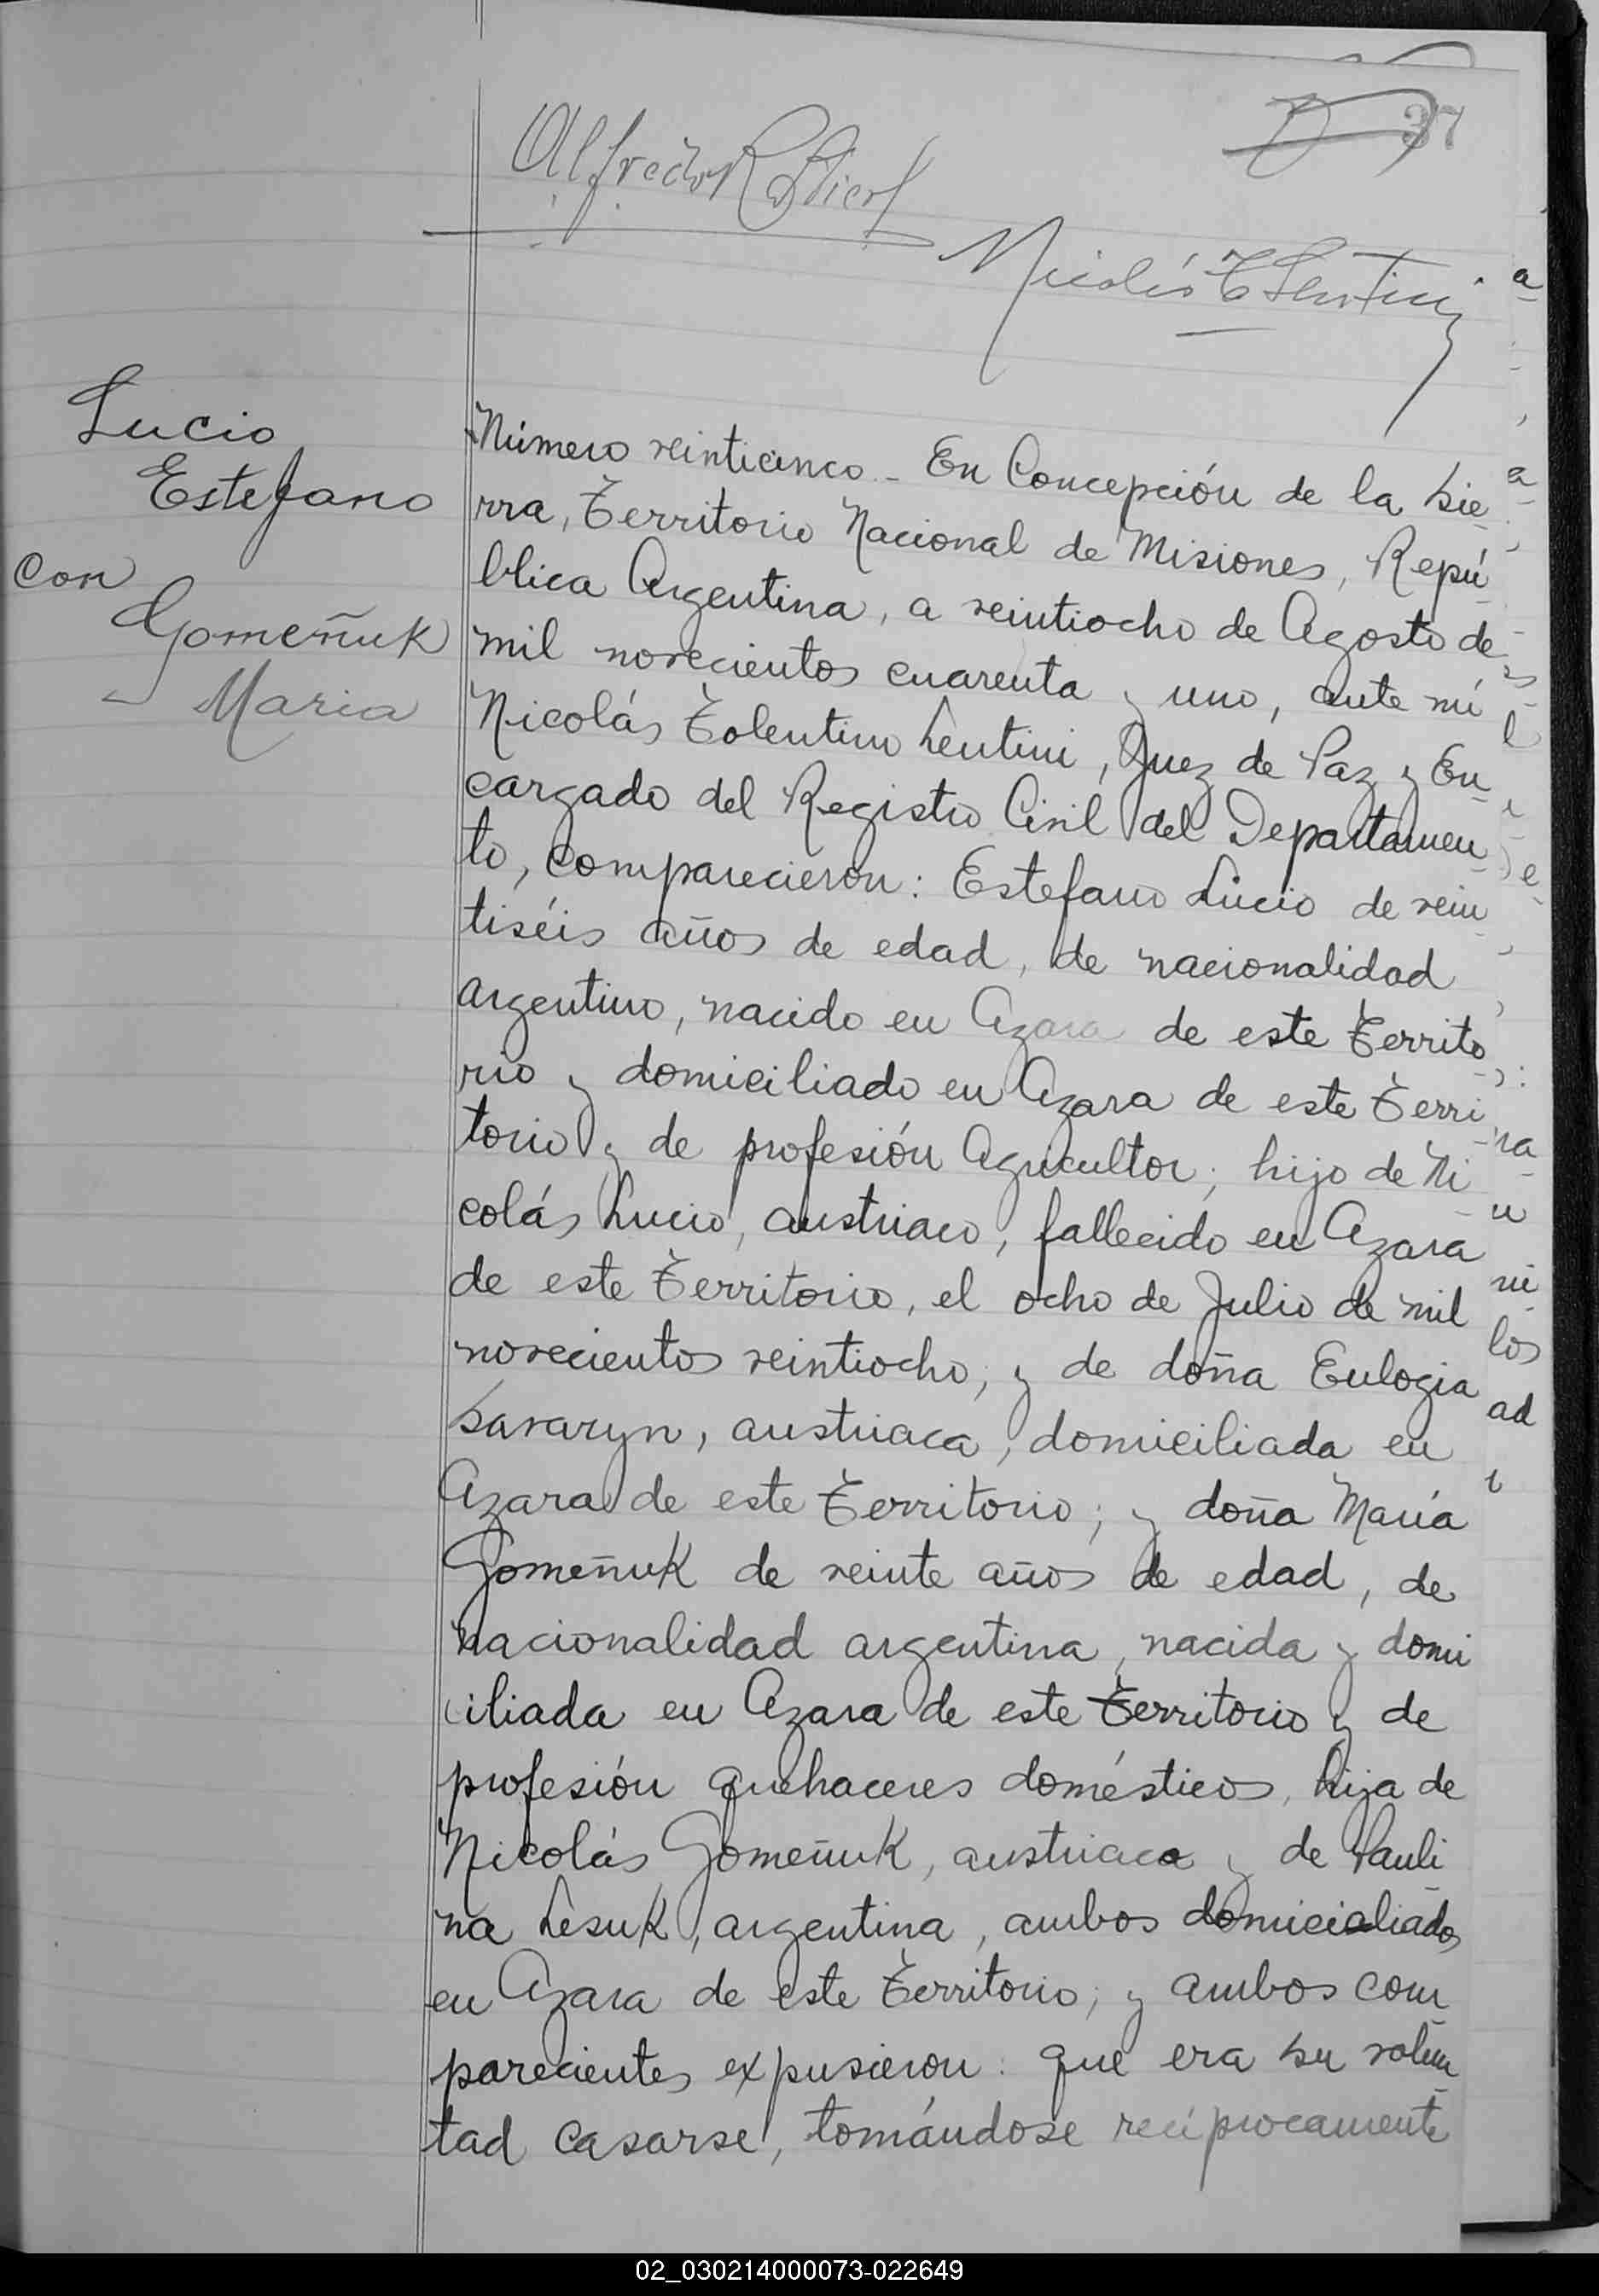 37
Alfredo R
Nicolás T Lentini
Lucio
Estefano
con
Gomeñuk
Maria
Número veinticinco - En Concepción de la Sie
rra, Territorio Nacional de Misiones, Repú
blica Argentina, a veintiocho de Agosto de
mil novecientos cuarenta y uno, ante mí
Nicolás Tolentino Lentini, Juez de Paz y En
cargado del Registro Civil del Departamen
to, comparecieron: Estefano Lucio de vein
tiséis años de edad, de nacionalidad
argentino, nacido en Azara de este Territo
rio y domiciliado en Azara de este Terri
torio y de profesión Agricultor; hijo de Ni
colás Lucio, austriaco, fallecido en Azara
de este Territorio, el ocho de Julio de mil
novecientos veintiocho; y de doña Eulogia
Savaryn, austriaca, domiciliada en
Azara de este Territorio; y doña María
Gomeñuk de veinte años de edad, de
nacionalidad argentina, nacida y domi
ciliada en Azara de este Territorio y de
profesión quehaceres domésticos, hija de
Nicolás Gomeñuk, austriaco y de Pauli
na Lesuk, argentina, ambos domicialiados
en Azara de este Territorio; y ambos com
parecientes expusieron: que era su volun
tad casarse, tomándose recíprocamente
02_030214000073-022649